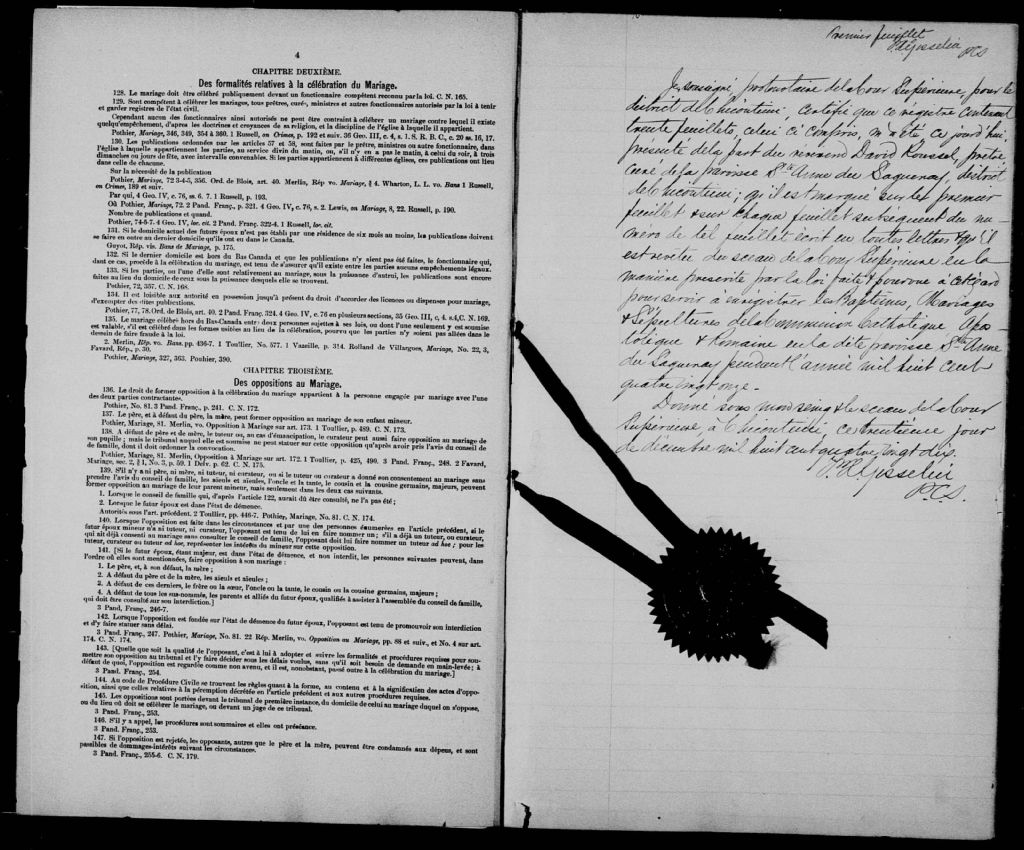 4
CHAPITRE DEUXIÈME.
Des formalités relatives à la célébration du Mariage.
128. Le mariage doit être célébré publiquement devant un fonctionnaire compétent reconnu par la loi. C. N. 165.
129. Sont compétents à célébrer les mariages, tous prêtres, curés, ministres et autres fonctionnaires autorisés par la loi à tenir
et garder registres de l'état civil.
Cependant aucun des fonctionnaires ainsi autorisés ne peut être contraint à célébrer un mariage contre lequel il existe
quelqu'empêchement, d'après les doctrines et croyances de sa religion, et la discipline de l'église à laquelle il appartient.
Pothier, Mariage, 346, 349, 354 & 360. 1 Russell, on Crimes, p. 192 et suiv. 36 Geo. III, c. 4, s. 1. S. R. B. C., c. 20 ss. 16, 17.
130. Les publications ordonnées par les articles 57 et 58, sont faites par le prêtre, ministre ou autre fonctionnaire, dans
l'église à laquelle appartiennent les parties, au service divin du matin, ou, s'il n'y en a pas le matin, à celui du soir, à trois
dimanches ou jours de fête, avec intervalle convenables. Si les parties appartiennent à différentes églises, ces publications ont lieu
dans celle de chacune.
Sur la nécessité de la publication
Pothier, Mariage, 72 3-4-5, 356. Ord. de Blois, art. 40. Merlin, Rép vo. Mariage, § 4. Wharton, L. L. vo. Bans 1 Russell,
on Crimes, 189 et suiv.
Par qui, 4 Geo. IV, c. 76, ss. 6, 7. 1 Russell, p. 193.
Où Pothier, Mariage, 72. 2 Pand. Franç., p. 321. 4 Geo IV, c. 76, s. 2. Lewis, on Mariage, 8, 22. Russell, p. 190.
Nombre de publications et quand.
Pothier, 74-5-7. 4 Geo. IV, loc. cit. 2 Pand. Franç. 322-4. 1 Russell, loc. cit.
131. Si le domicile actuel des futurs époux n'est pas établi par une résidence de six mois au moins, les publications doivent
se faire en outre au dernier domicile qu'ils ont eu dans le Canada.
Guyot, Rép. vis. Bans de Mariage, p. 175.
132. Si le dernier domicile est hors du Bas Canada et que les publications n'y aient pas été faites, le fonctionnaire qui,
dant ce cas, procède à la célébration du mariage, est tenu de s'assurer qu'il existe entre les parties aucuns empêchements légaux.
133. Si les parties, ou l'une d'elle sont relativement au mariage, sous la puissance d'autrui, les publications sont encore
faites au lieu du domicile de ceux sous la puissance desquels elle se trouvent.
Pothier, 72, 357. C. N. 168.
134. Il est loisible aux autorité en possession jusqu'à présent du droit d'accorder des licences ou dispenses pour mariage,
d'exempter des dites publications.
Pothier, 77, 78. Ord. de Blois, art. 40. 2 Pand. Franç. 324. 4 Geo. IV, c. 76 en plusieurs sections, 35 Geo. III, c. 4. s.4, C. N. 169.
135. Le mariage célébré hors du Bas-Canada entre deux personnes sujettes à ses lois, ou dont l'une seulement y est soumise
est valable, s'il est célébré dans les formes usitées au lieu de la célébration, pourvu que les parties n'y soient pas allées dans le
dessein de faire fraude à la loi.
2. Merlin, Rép. vo. Bans. pp. 436-7. 1 Toullier, No. 577. 1 Vazeille. p. 314. Rolland de Villargues, Mariage, No. 22, 3,
Favard, Rép., p. 30.
Pothier, Mariage, 327, 363. Pouhier, 390.
CHAPITRE TROISIÈME.
Des oppositions au Mariage.
136. Le droit de former opposition à la célébration du mariage appartient à la personne engagée par mariage avec l'une
des deux parties contractantes.
Pothier, No. 81. 3 Pand. Franç., p. 241. C. N. 172.
137. Le père, et à défaut du père, la mère, peut former opposition au mariage de son enfant mineur.
Pothier, Mariage, 81. Merlin, vo. Opposition à Mariage sur art. 173. 1 Toullier, p. 489. C. N. 173.
138. A défaut de père et de mère, le tuteur ou, au cas d'émancipation, le curateur peut aussi faire opposition au mariage de
son pupille; mais le tribunal auquel elle est soumise ne peut statuer sur cette opposition qu'après avoir pris l'avis du conseil de
famille, dont il doit ordonner la convocation.
Pothier, Mariage, 81. Merlin, Opposition à Mariage sur art. 172. 1 Toullier, p. 425, 490. 3 Pand. Franç., 248. 2 Favard,
Mariage, sec. 2, § 1, No. 3, p. 59. 1 Delv. p. 62. C. N. 175.
139. S'il n'y a ni père, ni mère, ni tuteur, ni curateur, ou si le tuteur ou curateur a donné son consentement au mariage sans
prendre l'avis du conseil de famille, les aïeuls et aïeules, l'oncle et la tante, le cousin et la cousine germains, majeurs, peuvent
former opposition au mariage de leur parent mineur, mais seulement dans les deux cas suivants.
1. Lorsque le conseil de famille qui, d'après l'article 122, aurait dû être consulté, ne l'a pas été;
2. Lorsque le futur époux est dans l'état de démence.
Autorités sous l'art. précédent. 2 Toullier, pp. 446-7. Pothier, Mariage, No. 81. C. N. 174.
140. Lorsque l'opposition est faite dans les circonstances et par une des personnes énumérées en l'article précédent, si le
futur époux mineur n'a ni tuteur, ni curateur, l'opposant est tenu de lui en faire nommer un; s'il a déjà un tuteur, ou curateur,
qui ait déjà consenti au mariage sans consulter le conseil de famille, l'opposant doit lui faire nommer un tuteur ad hoc; pour les
tuteur, curateur ou tuteur ad hoc, représenter les intérêts du mineur sur cette opposition.
141. [Si le futur époux, étant majeur, est dans l'état de démence, et non interdit, les personnes suivantes peuvent, dans
l'ordre où elles sont mentionnées, faire opposition à son mariage:
1. Le père, et, à son défaut, la mère;
2. A défaut du père et de la mère, les aïeuls et aïeules;
3. A défaut de ces derniers, le frère ou la sœur, l'oncle ou la tante, le cousin ou la cousine germains, majeurs;
4. A défaut de tous les sus-nommés, les parents et alliés du futur époux, qualifiés à assister à l'assemblée du conseil de famille,
qui doit être consulté sur son interdiction.]
3 Pand. Franç., 246-7.
142. Lorsque l'opposition est fondée sur l'état de démence du futur époux, l'opposant est tenu de promouvoir son interdiction
et d'y faire statuer sans délai.
3 Pand. Franç., 247. Pothier, Mariage, No. 81. 22 Rép. Merlin, vo. Opposition au Mariage, pp. 88 et suiv., et No. 4 sur art.
174. C. N. 174.
143. [Quelle que soit la qualité de l'opposant, c'est à lui à adopter et suivre les formalités et procédures requises pour soumettre
mettre son opposition au tribunal et l'y faire décider sous les délais voulus, sans qu'il soit besoin de demande en main-levée; à
défaut de quoi, l'opposition est regardée comme non avenu, et il est, nonobstant, passé outre à la célébration du mariage.]
3 Pand. Franç., 254.
144. Au code de Procédure Civile se trouvent les règles quant à la forme, au contenu et à la signification des actes d'opposition,
sition, ainsi que celles relatives à la péremption décrétée en l'article précédent et aux autres procédures requises.
145. Les oppositions sont portées devant le tribunal de première instance, du domicile de celui au mariage duquel on s'oppose,
ou du lieu où doit se célébrer le mariage, ou devant un juge de ce tribunal.
3 Pand. Franç., 253.
146. S'il y a appel, les procédures sont sommaires et elles ont préséance.
3 Pand. Franç., 253.
147. Si l'opposition est rejetée, les opposants, autres que le père et la mère, peuvent être condamnés aux dépens, et sont
passibles de dommages-intérêts suivant les circonstances.
3 Pand. Franç., 255-6. C. N. 179.
Premier feuillet
Gosselin
PCS
Je, soussigné, protonotaire de la Cour Supérieure, pour le
district de Chicoutimi, certifie que ce régistre contenant
trente feuillets, celui ci compris, m'a été ce jourd'hui
présenté de la part du révérend David Roussel, prêtre,
curé de la paroisse Ste Anne du Saguenay, district
de Chicoutimi; qu'il est marqué sur le premier
feuillet & sur chaque feuillet subséquent du nu-
méro de tel feuillet écrit en toutes lettres & qu'il
est revêtu du sceau de la Cour Supérieure en la
manière prescrite par la loi faite & pourvue à cet égard
pour servir à enregistrer les Baptêmes, Mariages
& Sépultures de la Communion Catholique Apos-
tolique & Romaine en la dite paroisse Ste Anne
du Saguenay pendant l'année mil huit cent
quatre vingt onze.-
Donné sous mon seing & le sceau de la Cour
Supérieure à Chicoutimi, ce trentième jour
de décembre mil huit cent quatre vingt dix.
Gosselin
PCS